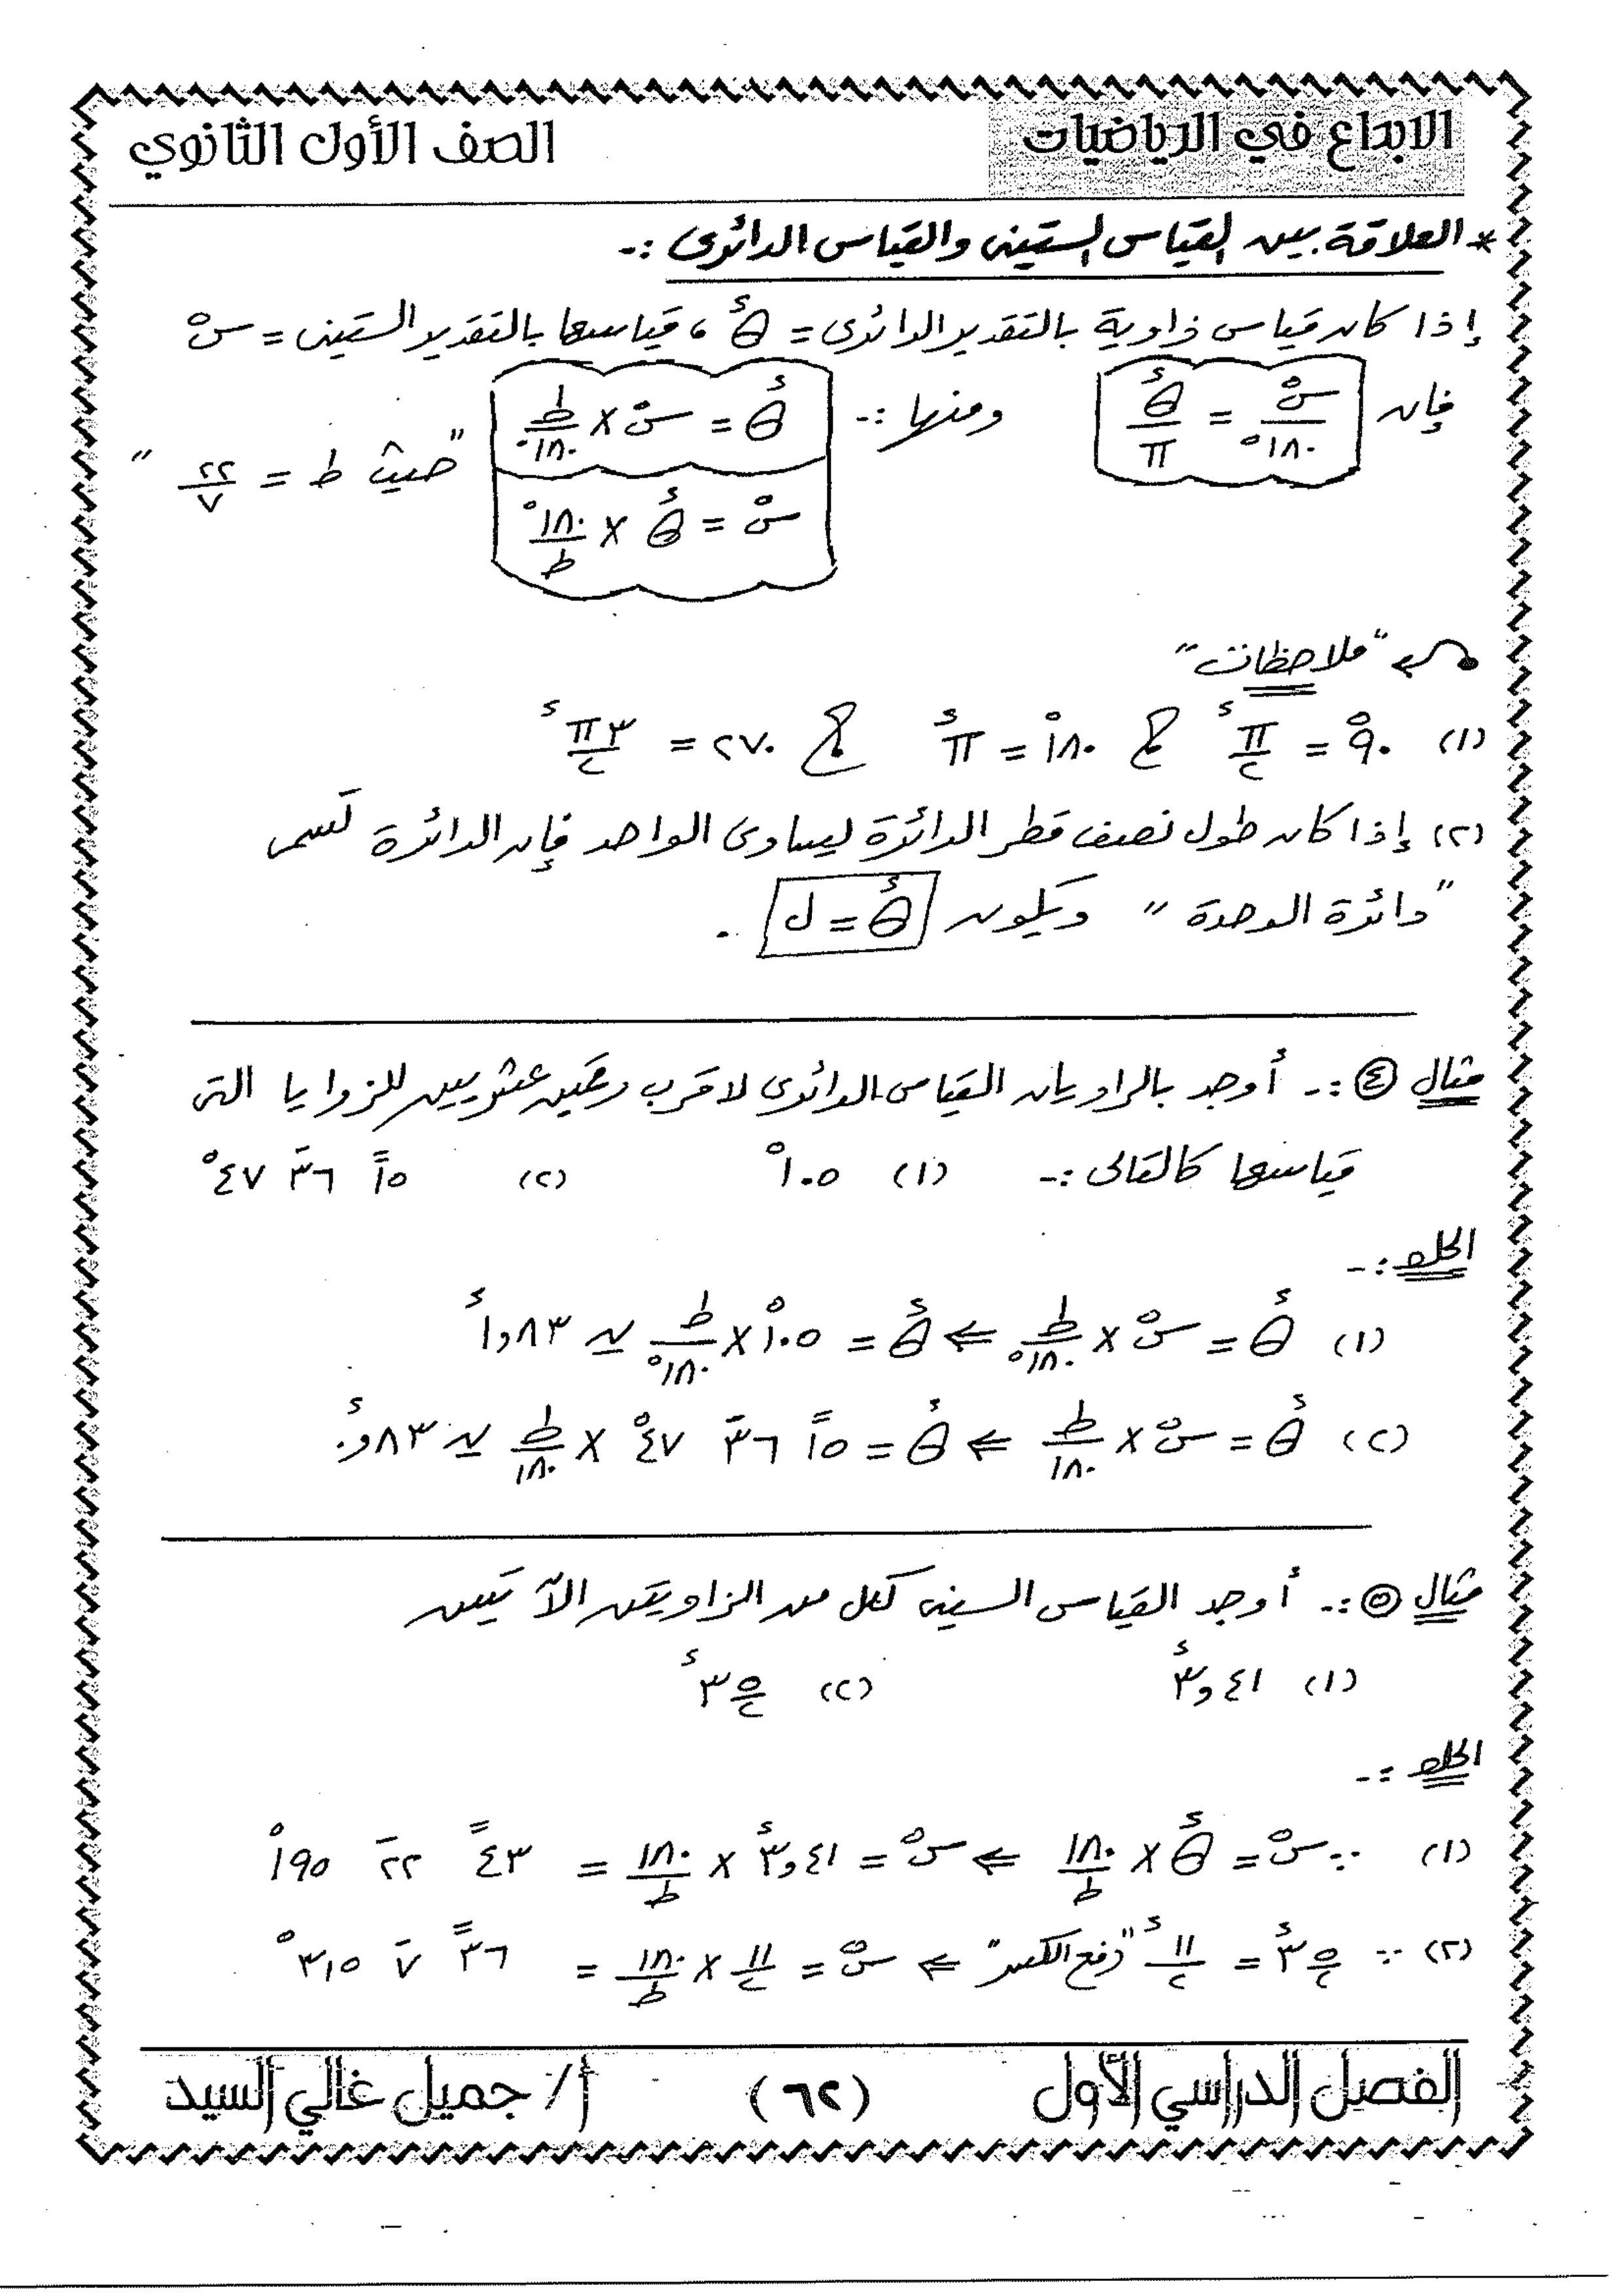 الابداع في الرياضيات الصف الأول الثانوي
* العلاقة بين القياس الستينى والقياس الدائرى :-
إذا كان قياس زاوية بالتقدير الدائرى = θ^ء ، قياسها بالتقدير الستينى = س°
فإن س°/١٨٠° = θ^ء/π ومنها :- θ^ء = س° × ط/١٨٠° "حيث ط = ٢٢/٧"
س° = θ^ء × ١٨٠°/ط
"ملاحظات"
(١) ٩٠° = π/٢^ء ، ١٨٠° = π^ء ، ٢٧٠ = ٣π/٢^ء
(٢) إذا كان طول نصف قطر الدائرة يساوى الواحد فإن الدائرة تسمى
"دائرة الوحدة" ويكون θ^ء = ل .
مثال (٤) :- أوجد بالراديان القياس الدائرى لأقرب رقمين عشريين للزوايا التى
قياسها كالتالى :- (١) ١٠٥° (٢) ١٥ً ٣٦َ ٤٧°
الحل :-
(١) θ^ء = س° × ط/١٨٠° ⇐ θ^ء = ١٠٥° × ط/١٨٠° ≃ ١,٨٣^ء
(٢) θ^ء = س° × ط/١٨٠ ⇐ θ^ء = ١٥ً ٣٦َ ٤٧° × ط/١٨٠ ≃ ٠,٨٣^ء
مثال (٥) :- أوجد القياس الستينى لكل من الزاويتين الآتيتين
(١) ٣,٤١^ء (٢) ٣ ٥/٢^ء
الحل :-
(١) ∵ س° = θ^ء × ١٨٠/ط ⇐ س° = ٣,٤١^ء × ١٨٠/ط = ٤٣ً ٢٢َ ١٩٥°
(٢) ∵ ٣ ٥/٢^ء = ١١/٢^ء "رفع الكسر" ⇐ س° = ١١/٢ × ١٨٠/ط = ٣٦ً ٧َ ٣١٥°
الفصل الدراسي الأول (٦٢) أ/ جميل غالي السيد